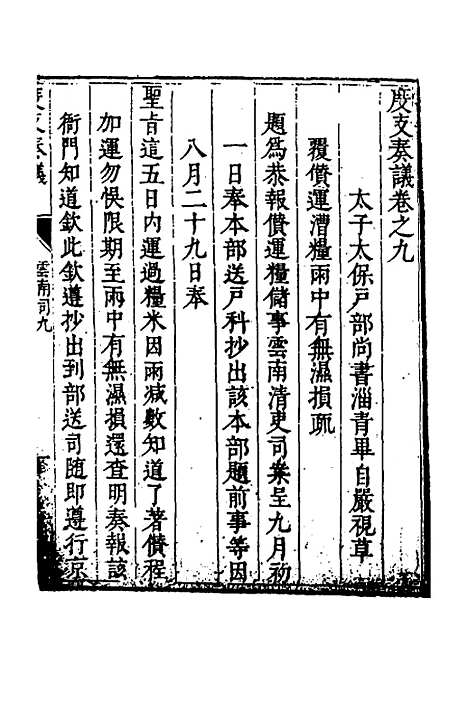 度支奏議卷之九
太子太保戶部尚書淄青畢自嚴視草
覆儧運漕糧雨中有無濕損疏
題為恭報儧運糧儲事雲南清吏司案呈九月初
一日奉本部送戶科抄出該本部題前事等因
八月二十九日奉
聖旨這五日內運過糧米因雨減數知道了著儧程
加運勿悞限期至雨中有無濕損還查明奏報該
衙門知道欽此欽遵抄出到部送司隨即遵行京
度支奏議
雲南司九